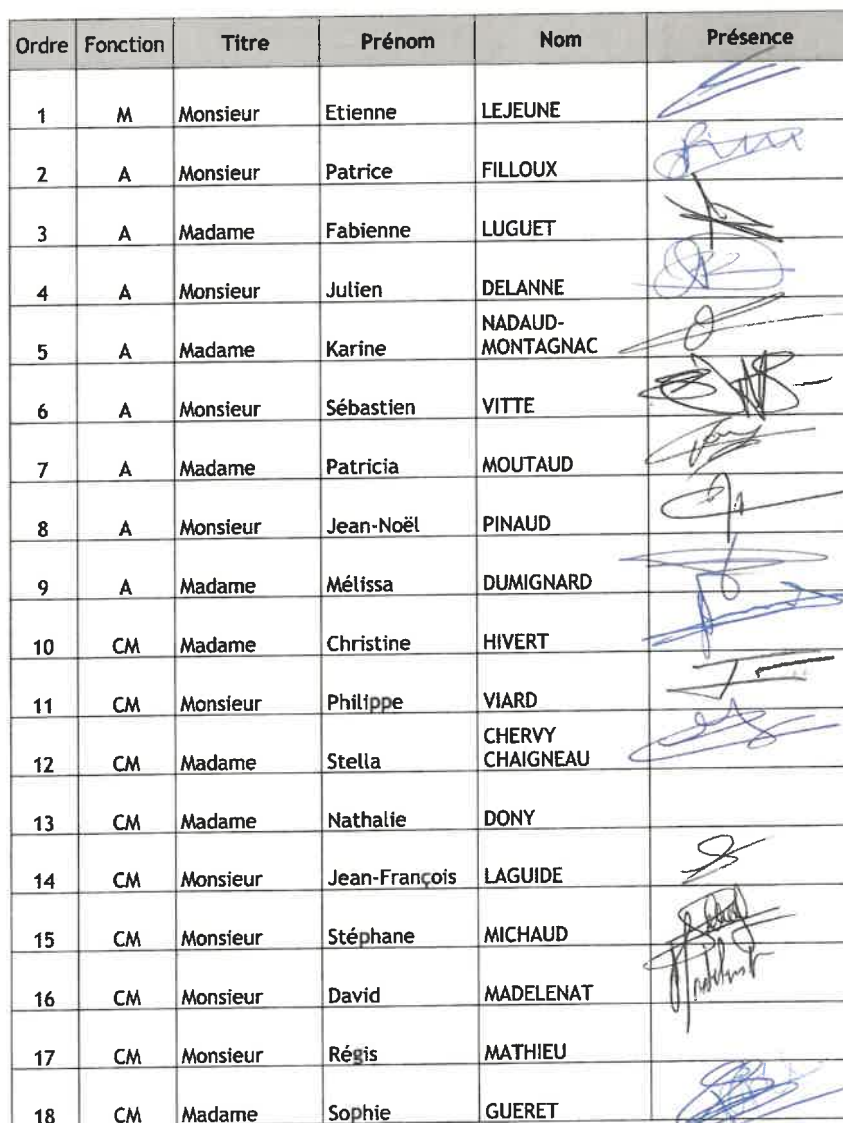 Ordre Fonction Titre Prénom Nom Présence
1 M Monsieur Etienne LEJEUNE
2 A Monsieur Patrice FILLOUX
3 A Madame Fabienne LUGUET
4 A Monsieur Julien DELANNE
5 A Madame Karine NADAUD-
MONTAGNAC
6 A Monsieur Sébastien VITTE
7 A Madame Patricia MOUTAUD
8 A Monsieur Jean-Noël PINAUD
9 A Madame Mélissa DUMIGNARD
10 CM Madame Christine HIVERT
11 CM Monsieur Philippe VIARD
12 CM Madame Stella CHERVY
CHAIGNEAU
13 CM Madame Nathalie DONY
14 CM Monsieur Jean-François LAGUIDE
15 CM Monsieur Stéphane MICHAUD
16 CM Monsieur David MADELENAT
17 CM Monsieur Régis MATHIEU
18 CM Madame Sophie GUERET